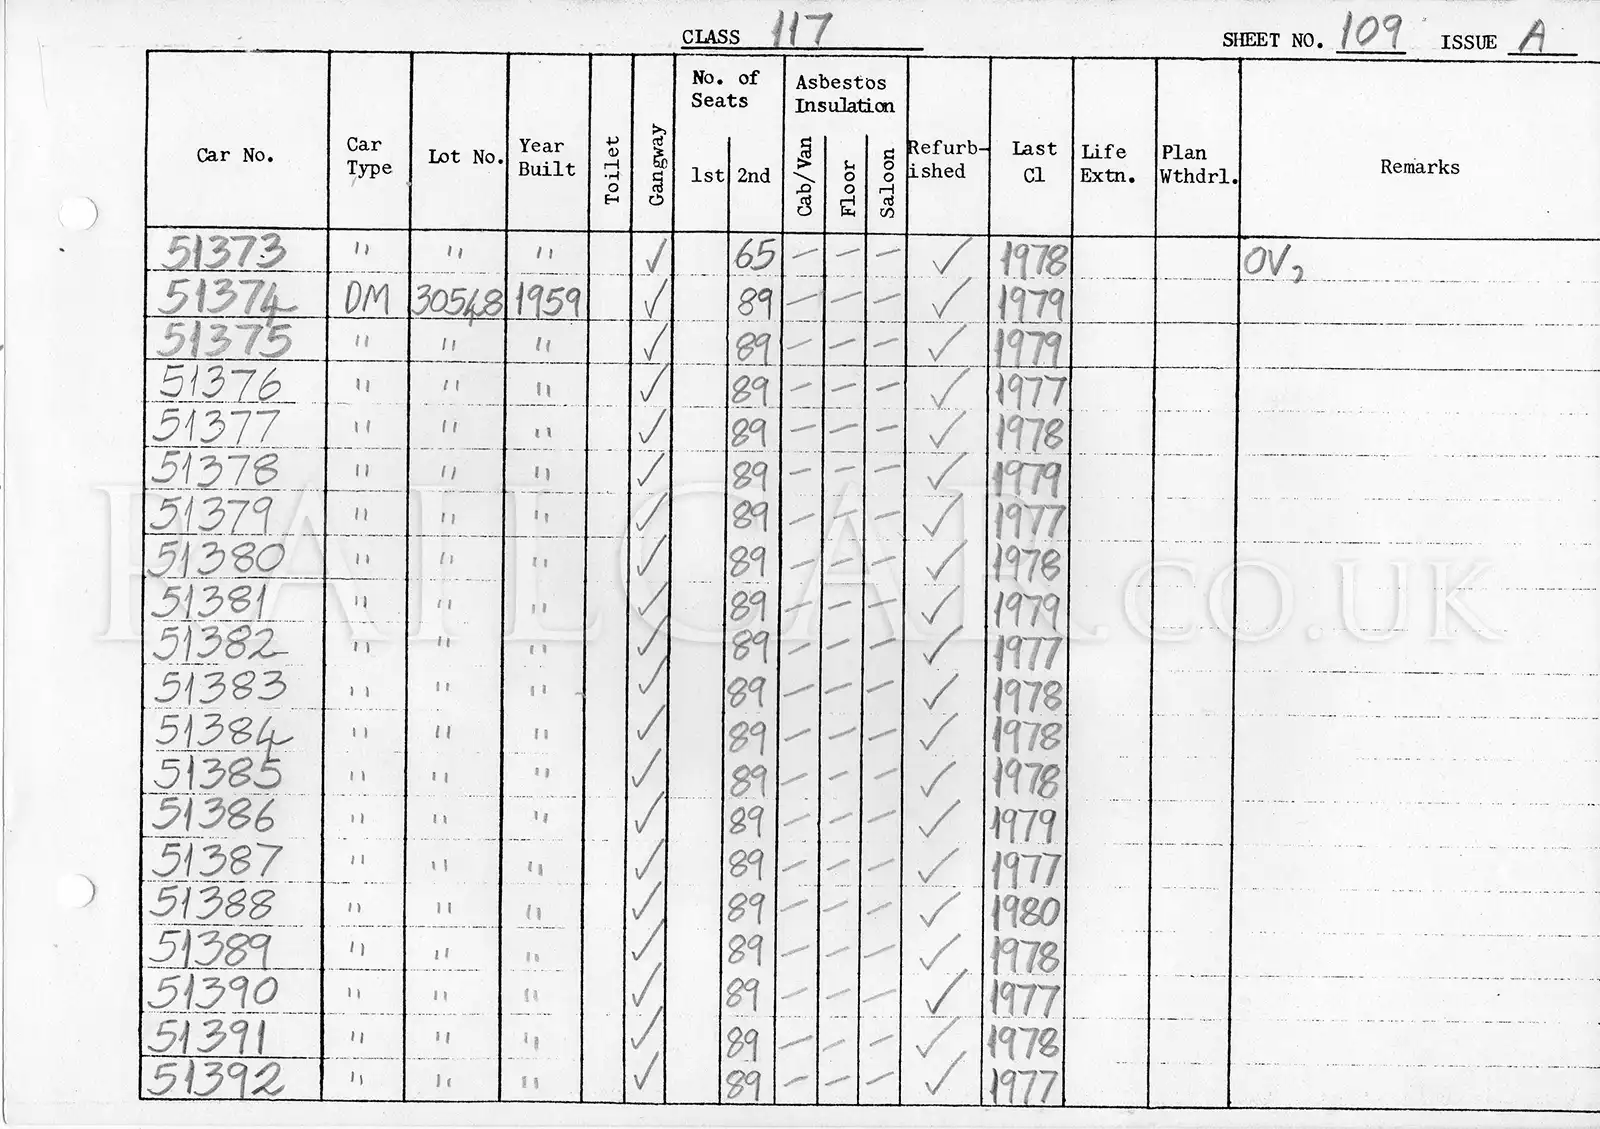 CLASS 117 SHEET NO. 109 ISSUE A
Car No. Car Type Lot No. Year Built Toilet Gangway No. of Seats 1st 2nd Asbestos Insulation Cab/Van Floor Saloon Refurb-ished Last Cl Life Extn. Plan Wthdrl. Remarks
51373 " " " ✓ 65 — — — ✓ 1978 OV,
51374 DM 30548 1959 ✓ 89 — — — ✓ 1979
51375 " " " ✓ 89 — — — ✓ 1979
51376 " " " ✓ 89 — — — ✓ 1977
51377 " " " ✓ 89 — — — ✓ 1978
51378 " " " ✓ 89 — — — ✓ 1979
51379 " " " ✓ 89 — — — ✓ 1977
51380 " " " ✓ 89 — — — ✓ 1978
51381 " " " ✓ 89 — — — ✓ 1979
51382 " " " ✓ 89 — — — ✓ 1977
51383 " " " ✓ 89 — — — ✓ 1978
51384 " " " ✓ 89 — — — ✓ 1978
51385 " " " ✓ 89 — — — ✓ 1978
51386 " " " ✓ 89 — — — ✓ 1979
51387 " " " ✓ 89 — — — ✓ 1977
51388 " " " ✓ 89 — — — ✓ 1980
51389 " " " ✓ 89 — — — ✓ 1978
51390 " " " ✓ 89 — — — ✓ 1977
51391 " " " ✓ 89 — — — ✓ 1978
51392 " " " ✓ 89 — — — ✓ 1977
RAILCAR.CO.UK